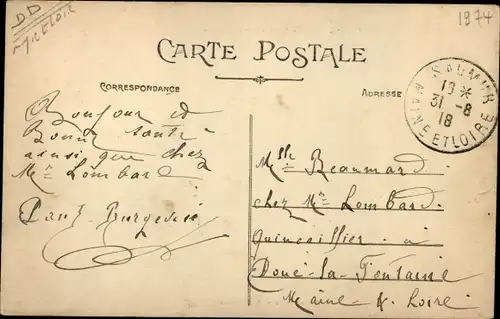 DD
1974
CARTE POSTALE
CORRESPONDANCE
ADRESSE
SAUMUR
19 *
31 -8
18
MAINE ET LOIRE
Bonjour et
Bonne santé
ainsi que chez
Mr Lombard
Paul
Mlle Beaumard
chez Mr Lombard
quincaillier à
Doué-la-Fontaine
Maine & Loire